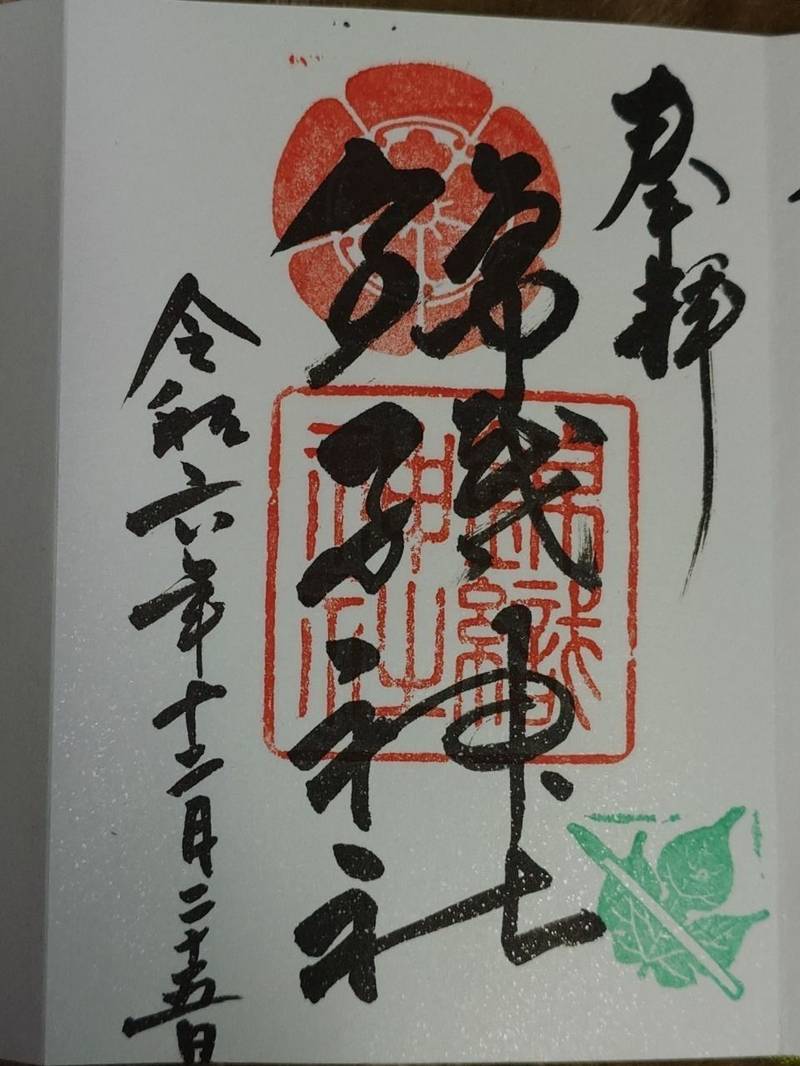 奉拝
錦織神社
錦織神社
令和六年十二月二十五日